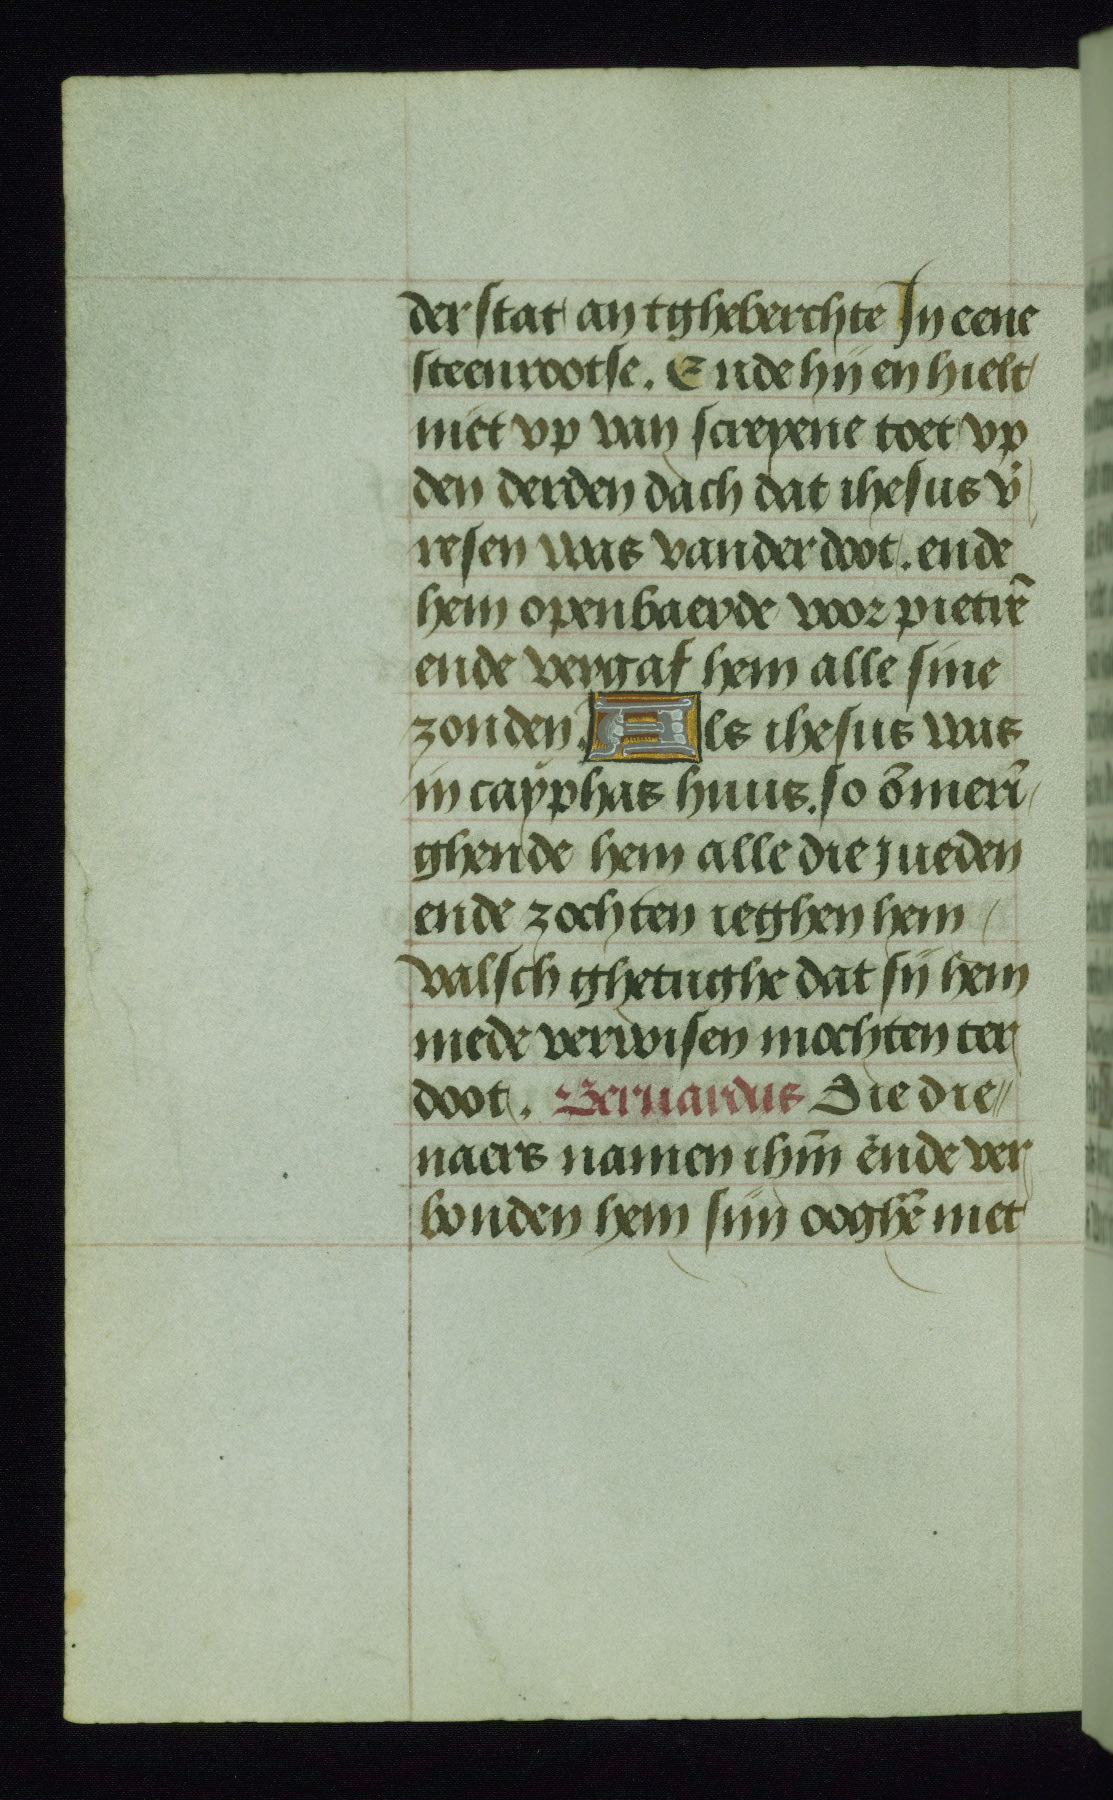 der stat an tgheberchte In eene
steenrootse. Ende hij en hielt
niet vp van screyene toet vp
den derden dach dat ihesus v̄
resen was vander doot. ende
hem openbaerde voor pietrē
ende vergaf hem alle sine
zonden. Als ihesus was
in cayphas huus. so ōmerī
ghende hem alle die jueden
ende zochten ieghen hem
valsch ghetughe dat sij hem
mede verwisen mochten ter
doot. Bernardus Die die
naers namen ihm̄ ende ver
bonden hem sijn ooghē met